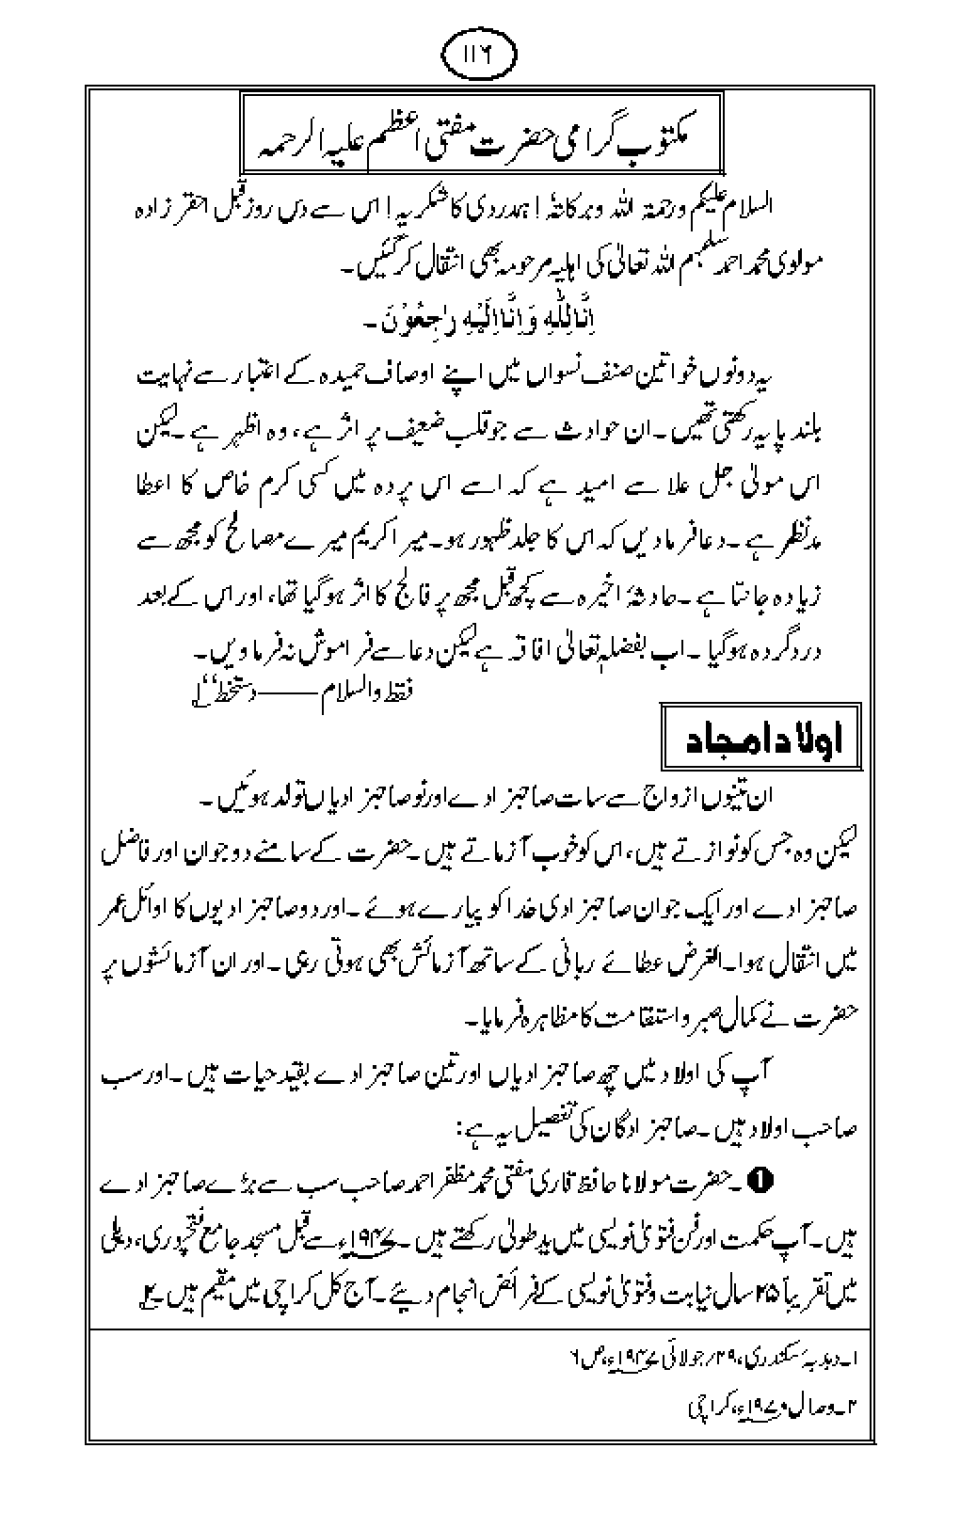 ۱۱۶
مکتوب گرامی حضرت مفتی اعظم علیہ الرحمہ
السلام علیکم ورحمۃ اللہ وبرکاتہٗ! ہمدردی کا شکریہ! اس سے دس روز قبل احقر زادہ
مولوی محمد احمد سلمہم اللہ تعالیٰ کی اہلیہ مرحومہ بھی انتقال کرگئیں۔
اِنَّا لِلّٰہِ وَاِنَّا اِلَیْہِ رٰجِعُوْنَ۔
یہ دونوں خواتین صنف نسواں میں اپنے اوصاف حمیدہ کے اعتبار سے نہایت
بلند پایہ رکھتی تھیں۔ ان حوادث سے جو قلب ضعیف پر اثر ہے، وہ اظہر ہے۔ لیکن
اس مولیٰ جل علا سے امید ہے کہ اسے اس پردہ میں کسی کرم خاص کا اعطا
مدنظر ہے۔ دعا فرمادیں کہ اس کا جلد ظہور ہو۔ میرا کریم میرے مصالح کو مجھ سے
زیادہ جانتا ہے۔ حادثۂ اخیرہ سے کچھ قبل مجھ پر فالج کا اثر ہوگیا تھا، اور اس کے بعد
درد گردہ ہوگیا۔ اب بفضلہٖ تعالیٰ افاقہ ہے لیکن دعا سے فراموش نہ فرماویں۔
فقط والسلام ——— دستخط‘‘ ۱
اولاد امجاد
ان تینوں ازواج سے سات صاحبزادے اور نو صاحبزادیاں تولد ہوئیں۔
لیکن وہ جس کو نوازتے ہیں، اس کو خوب آزماتے ہیں۔ حضرت کے سامنے دو جوان اور فاضل
صاحبزادے اور ایک جوان صاحبزادی خدا کو پیارے ہوئے۔ اور دو صاحبزادیوں کا اوائل عمر
میں انتقال ہوا۔ الغرض عطائے ربانی کے ساتھ آزمائش بھی ہوتی رہی۔ اور ان آزمائشوں پر
حضرت نے کمال صبر و استقامت کا مظاہرہ فرمایا۔
آپ کی اولاد میں چھ صاحبزادیاں اور تین صاحبزادے بقید حیات ہیں۔ اور سب
صاحب اولاد ہیں۔ صاحبزادگان کی تفصیل یہ ہے:
❶۔ حضرت مولانا حافظ قاری مفتی محمد مظفر احمد صاحب سب سے بڑے صاحبزادے
ہیں۔ آپ حکمت اور فن فتویٰ نویسی میں ید طولیٰ رکھتے ہیں۔ ۱۹۴۷ء سے قبل مسجد جامع فتحپوری، دہلی
میں تقریباً ۲۵ سال نیابت و فتویٰ نویسی کے فرائض انجام دیئے۔ آج کل کراچی میں مقیم ہیں۔ ۲
۱۔ دبدبۂ سکندری، ۲۹/جولائی ۱۹۴۷ء، ص ۶
۲۔ وصال ۱۹۷۰ء، کراچی